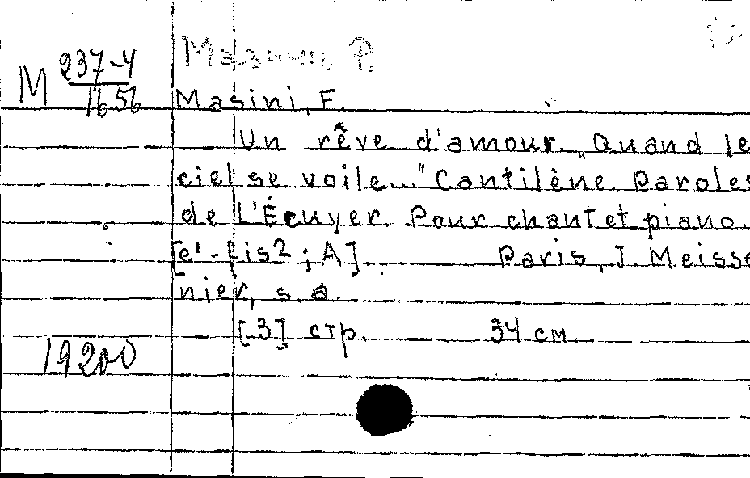 M 237-4
1656
Masini, F.
Un rêve d'amour. „Quand le
ciel se voile..." Cantilène. Paroles
de L'Écuyer. Pour chant et piano.
[e¹-fis2; A]. Paris, J. Meisso-
nier, s. a.
[3] стр. 34 см.
19200